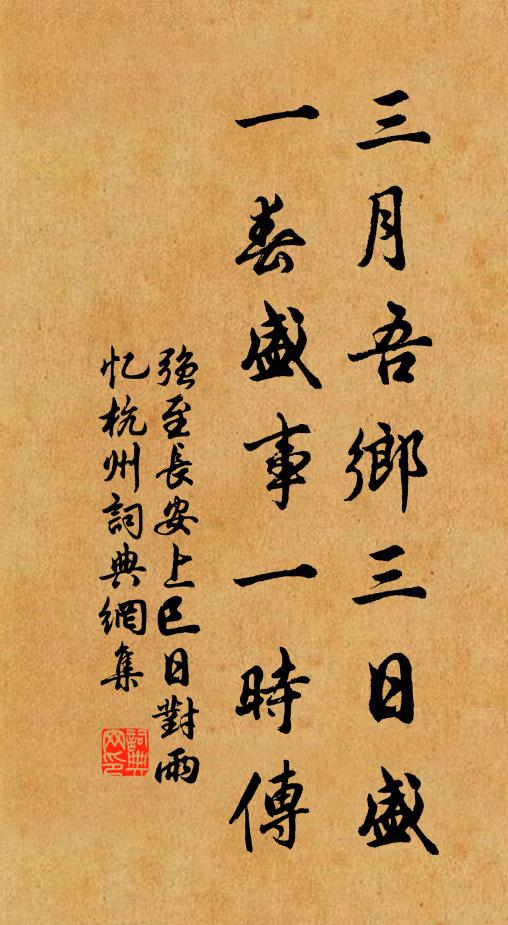 三月吾鄉三日盛
一春盛事一時傳
强至長安上巳日對雨
忆杭州詞典網集
詞典
网印